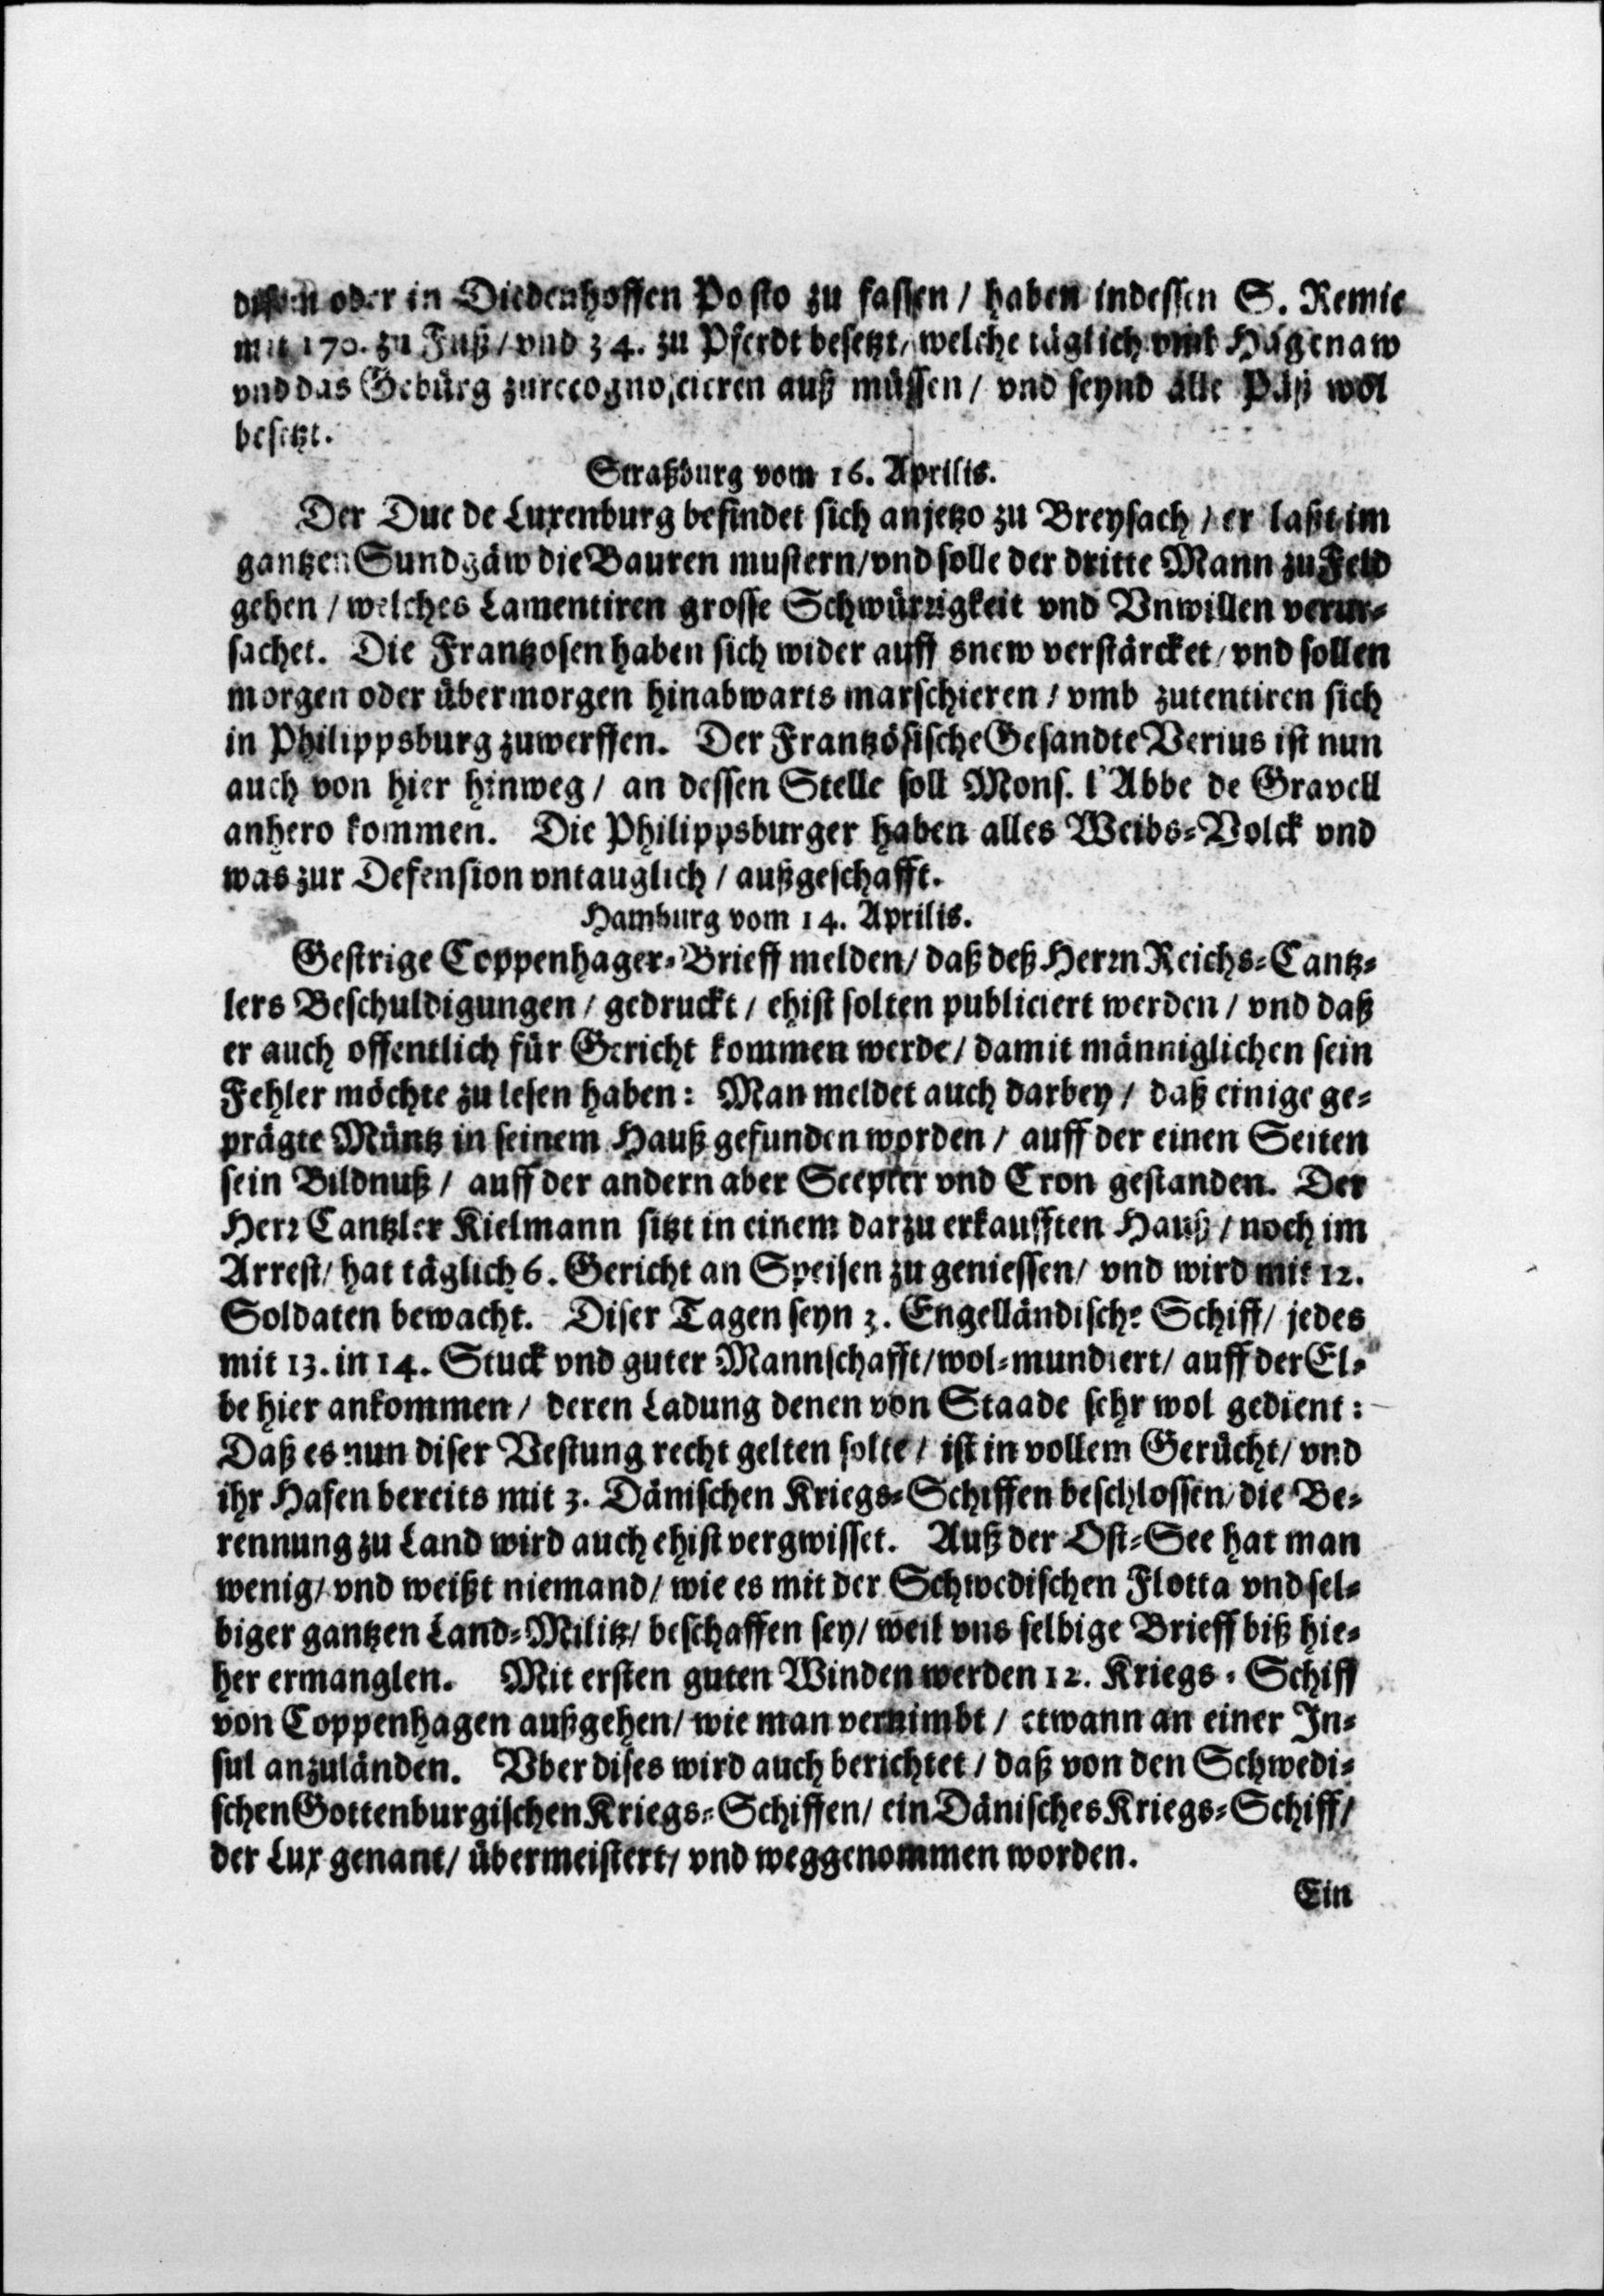 oder in Diedenhoffen Posto zu fassen / haben indessen S. Remie
mit 170. zu Fuß / vnd 34. zu Pferdt besetzt / welche täglich vmb Hagenaw
vnd das Gebürg zurecognoscieren auß müssen / vnd seynd alle Päß wol
besetzt.
Straßburg vom 16. Aprilis.
Der Duc de Luxenburg befindet sich anjetzo zu Breysach / er laßt im
gantzen Sundgäw die Bauren mustern / vnd solle der dritte Mann zu Feld
gehen / welches Lamentiren grosse Schwürrigkeit vnd Vnwillen verur-
sachet. Die Frantzosen haben sich wider auff snew verstärcket / vnd sollen
morgen oder übermorgen hinabwarts marschieren / vmb zutentiren sich
in Philippsburg zuwerffen. Der Frantzösische Gesandte Verius ist nun
auch von hier hinweg / an dessen Stelle soll Mons. l'Abbe de Gravell
anhero kommen. Die Philippsburger haben alles Weibs-Volck vnd
was zur Defension vntauglich / außgeschafft.
Hamburg vom 14. Aprilis.
Gestrige Coppenhager-Brieff melden / daß deß Herrn Reichs-Cantz-
lers Beschuldigungen / gedruckt / ehist solten publiciert werden / vnd daß
er auch offentlich für Gericht kommen werde / damit männiglichen sein
Fehler möchte zu lesen haben: Man meldet auch darbey / daß einige ge-
prägte Müntz in seinem Hauß gefunden worden / auff der einen Seiten
sein Bildnuß / auff der andern aber Scepter vnd Cron gestanden. Der
Herr Cantzler Kielmann sitzt in einem darzu erkaufften Hauß / noch im
Arrest / hat täglich 6. Gericht an Speisen zu geniessen / vnd wird mit 12.
Soldaten bewacht. Diser Tagen seyn 3. Engelländische Schiff / jedes
mit 13. in 14. Stuck vnd guter Mannschafft / wol-mundiert / auff der El-
be hier ankommen / deren Ladung denen von Staade sehr wol gedient:
Daß es nun diser Vestung recht gelten solte / ist in vollem Gerücht / vnd
ihr Hafen bereits mit 3. Dänischen Kriegs-Schiffen beschlossen / die Be-
rennung zu Land wird auch ehist vergwisset. Auß der Ost-See hat man
wenig / vnd weißt niemand / wie es mit der Schwedischen Flotta vnd sel-
biger gantzen Land-Militz / beschaffen sey / weil vns selbige Brieff biß hie-
her ermanglen. Mit ersten guten Winden werden 12. Kriegs-Schiff
von Coppenhagen außgehen / wie man vernimbt / etwann an einer In-
sul anzuländen. Vber dises wird auch berichtet / daß von den Schwedi-
schen Gottenburgischen Kriegs-Schiffen / ein Dänisches Kriegs-Schiff /
der Lux genant / übermeistert / vnd weggenommen worden.
Ein